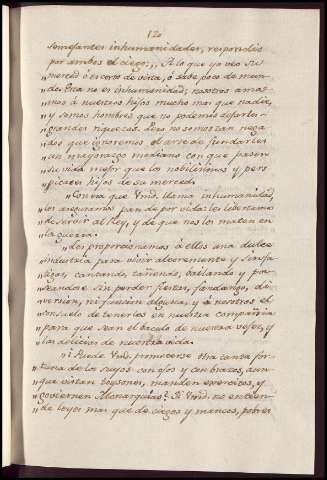 120
semejantes inhumanidades, respondió
por ambos el ciego;,, A lo que yo veo su
„ merced ò es corto de vista, ò sabe poco de mun-
„ do. Esta no es inhumanidad; nosotros ama-
„ mos á nuestros hijos mucho mas que nadie,
„ y somos hombres que no podemos dejarles
„ grandes riquezas. Pero no somos tan nega-
„ dos que ignoremos el arte de fundarles
„ un mayorazgo mediano con que pasen
„ su vida mejor que los nobilisimos y pers-
„ picaces hijos de su merced.
„ Con la que Vmd. llama inhumanidad,
„ les aseguramos pan de por vida: les libertamos
„ de servir al Rey, y de que nos los maten en
„ la guerra.
„ Les proporcionamos á ellos una dulce
„ industria para vivir alegremente y sin fa-
„ tigas, cantando, tañendo, bailando y pa-
„ seandose sin perder fiestas, fandango, di-
„ version, ni funcion alguna; y á nosotros el
„ consuelo de tenerles en nuestra compañia
„ para que sean el báculo de nuestra vejez, y
„ las delicias de nuestra vida.
„ ¿Puede Vmd. prometerse tanta for-
„ tuna de los suyos con ojos y con brazos, aun-
„ que vistan toysones, manden exercitos, y
„ goviernen Monarquías? Si Vmd. no entien-
„ de leyes mas que de ciegos y mancos, pobres